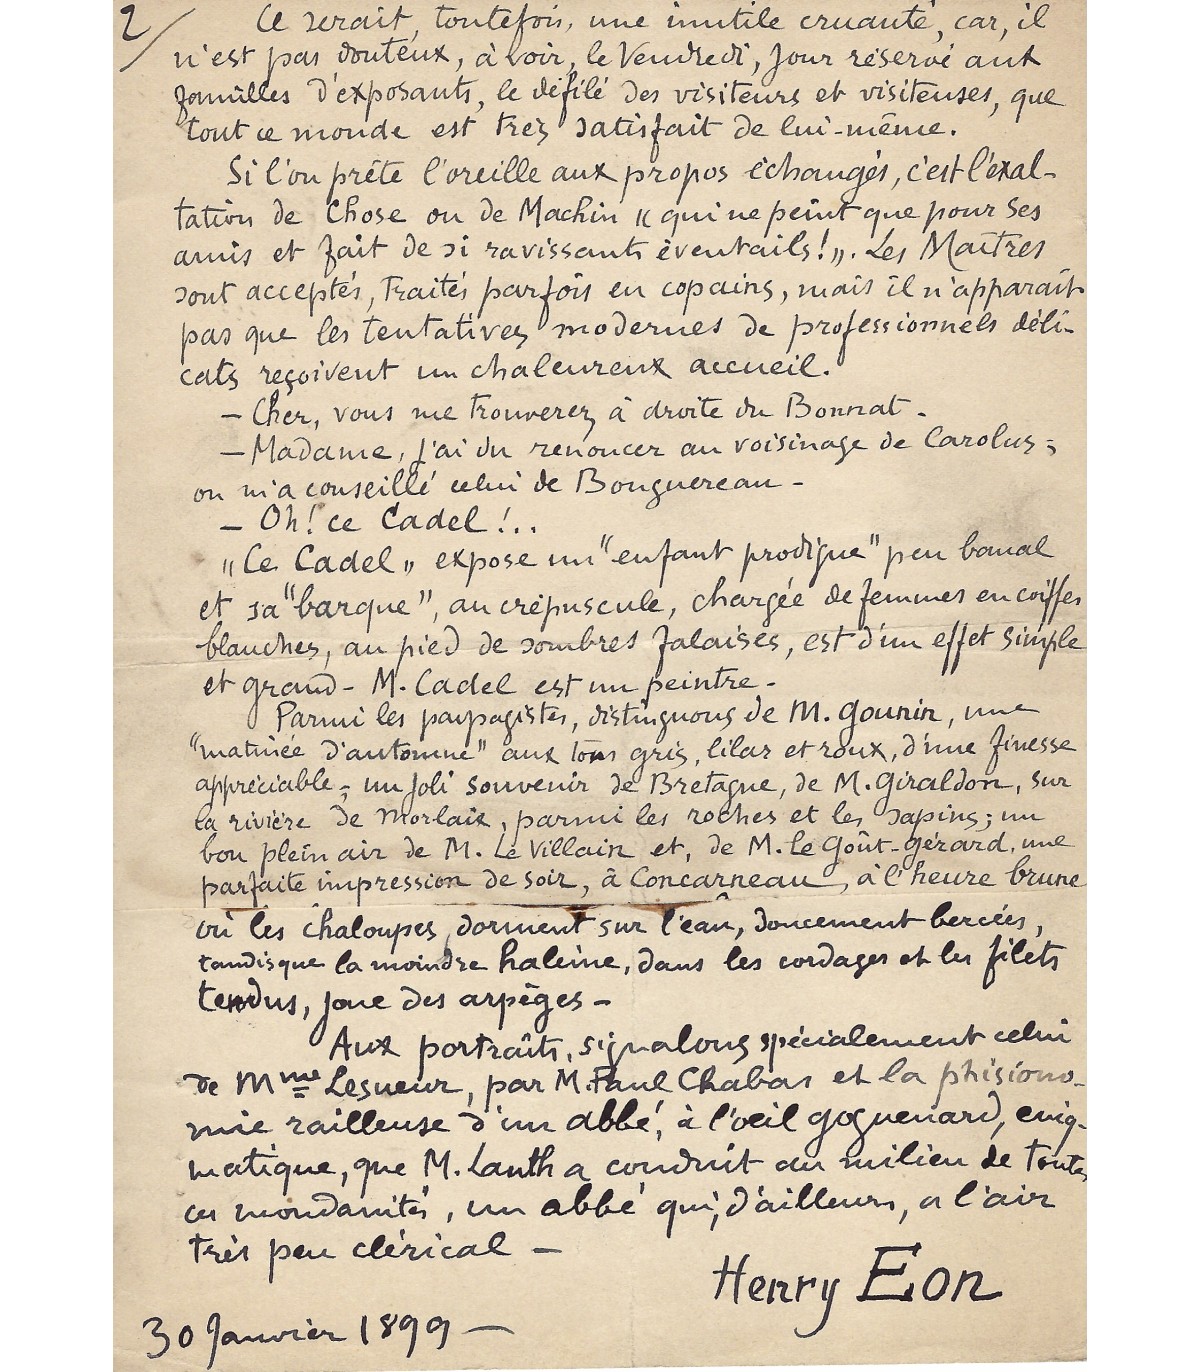 2/
Ce serait, toutefois, une inutile cruauté, car, il
n'est pas douteux, à voir, le Vendredi, jour réservé aux
familles d'exposants, le défilé des visiteurs et visiteuses, que
tout ce monde est très satisfait de lui-même.
Si l'on prête l'oreille aux propos échangés, c'est l'exal-
tation de Chose ou de Machin "qui ne peint que pour ses
amis et fait de si ravissants éventails!". Les Maîtres
sont acceptés, traités parfois en copains, mais il n'apparaît
pas que les tentatives modernes de professionnels déli-
cats reçoivent un chaleureux accueil.
— Cher, vous me trouverez à droite du Bonnat.
— Madame, j'ai du renoncer au voisinage de Carolus;
on m'a conseillé celui de Bouguereau —
— Oh! ce Cadel!..
"Ce Cadel" expose un "enfant prodigue" peu banal
et sa "barque", au crépuscule, chargée de femmes en coiffes
blanches, au pied de sombres falaises, est d'un effet simple
et grand — M. Cadel est un peintre —
Parmi les paysagistes, distinguons de M. Gounin, une
"matinée d'automne" aux tons gris, lilas et roux, d'une finesse
appréciable; un joli souvenir de Bretagne, de M. Giraldon, sur
la rivière de Morlaix, parmi les roches et les sapins; un
bon plein air de M. Le Villain et, de M. Le Goût-Gérard, une
parfaite impression de soir, à Concarneau, à l'heure brune
où les chaloupes dorment sur l'eau, doucement bercées,
tandis que la moindre haleine, dans les cordages et les filets
tendus, joue des arpèges —
Aux portraits, signalons spécialement celui
de Mme Lesueur, par M. Paul Chabas et la phisiono-
mie railleuse d'un abbé, à l'oeil goguenard, enig-
matique, que M. Lauth a conduit au milieu de toutes
ces mondanités, un abbé qui, d'ailleurs, a l'air
très peu clérical —
Henry Eon
30 Janvier 1899 —